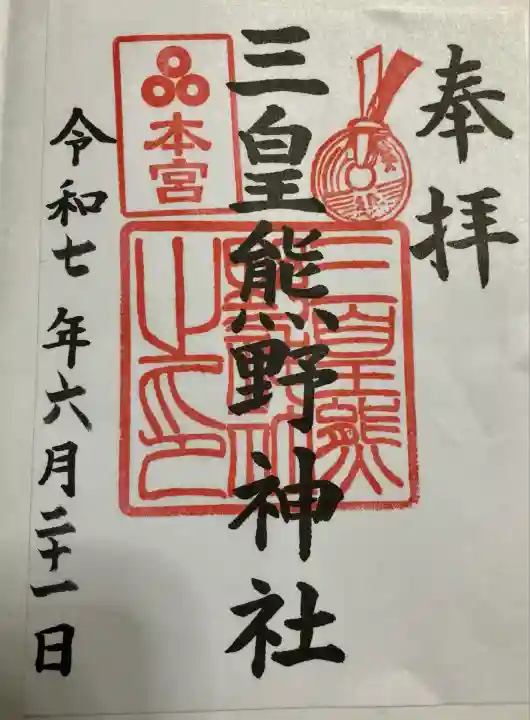 奉拝
三皇熊野神社
本宮
令和七年六月二十一日